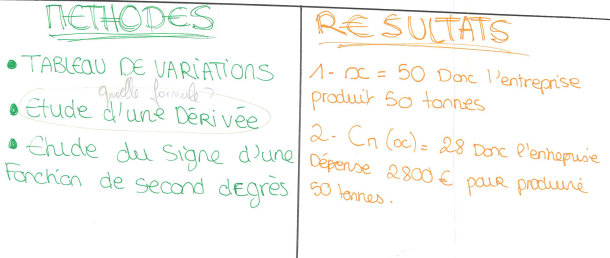 METHODES
• TABLEAU DE VARIATIONS
quelle formule ?
• Etude d'une DÉRIVÉE
• Etude du signe d'une
Fonction de second degrès
RESULTATS
1- x = 50 Donc l'entreprise
produit 50 tonnes
2- Cn (x) = 28 Donc l'entreprise
Dépense 2800 € pour produire
50 tonnes.